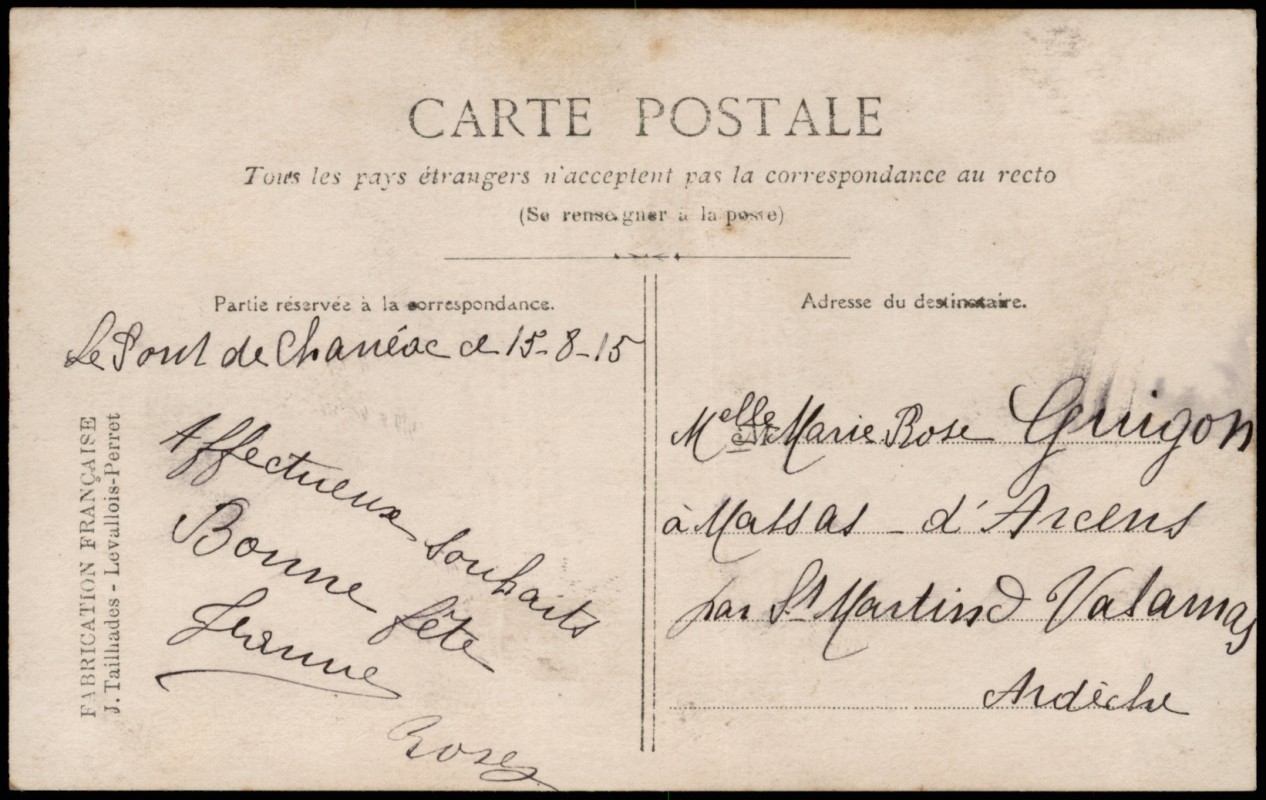 CARTE POSTALE
Tous les pays étrangers n'acceptent pas la correspondance au recto
(Se renseigner à la poste)
Partie réservée à la correspondance.
Le Pont de Chanéac le 15-8-15
Affectueux souhaits
Bonne fête
Jeanne
Rosey
FABRICATION FRANÇAISE
J. Tailhades - Levallois-Perret
Adresse du destinataire.
Melle Marie Rose Guigon
à Massas - d'Arcens
par St Martin d Valamas
Ardèche